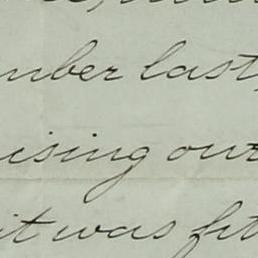 mber last,
ising our
it was fit